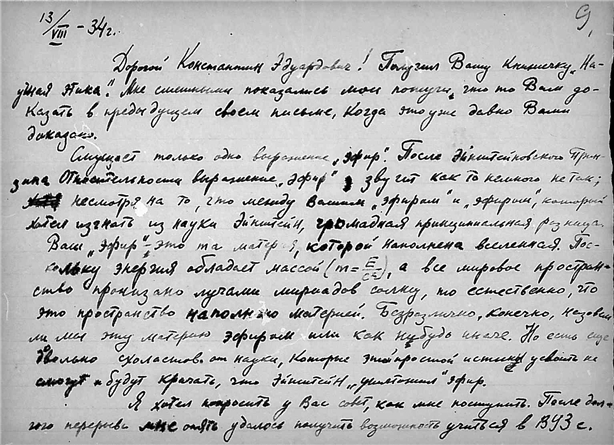 13/VIII - 34г.
9.
Дорогой Константин Эдуардович! Получил Вашу книжечку „На-
учная Этика“. Мне смешными показались мои потуги, что то Вам до-
казать в предыдущем своем письме, когда это уже давно Вами
доказано.
Смущает только одно выражение „эфир“. После Эйнштейновского Прин-
ципа Относительности выражение „эфир“ звучит как то немного не так;
несмотря на то, что между Вашим „эфиром“ и „эфиром“, который
хотел изгнать из науки Эйнштейн, громадная принципиальная разница.
Ваш „эфир“ - это та материя, которой наполнена вселенная. Пос-
кольку энергия обладает массой (m = E/c²), а все мировое простран-
ство пронизано лучами мириадов солнц, то естественно, что
это пространство наполнено материей. Безразлично, конечно, назовем
ли мы эту материю эфиром или как нибудь иначе. Но есть еще
довольно схоластов от науки, которые этой простой истины усвоить не
смогут и будут кричать, что Эйнштейн „уничтожил“ эфир.
Я хотел попросить у Вас совет, как мне поступить. После дол-
гого перерыва мне опять удалось получить возможность учиться в ВУЗе.